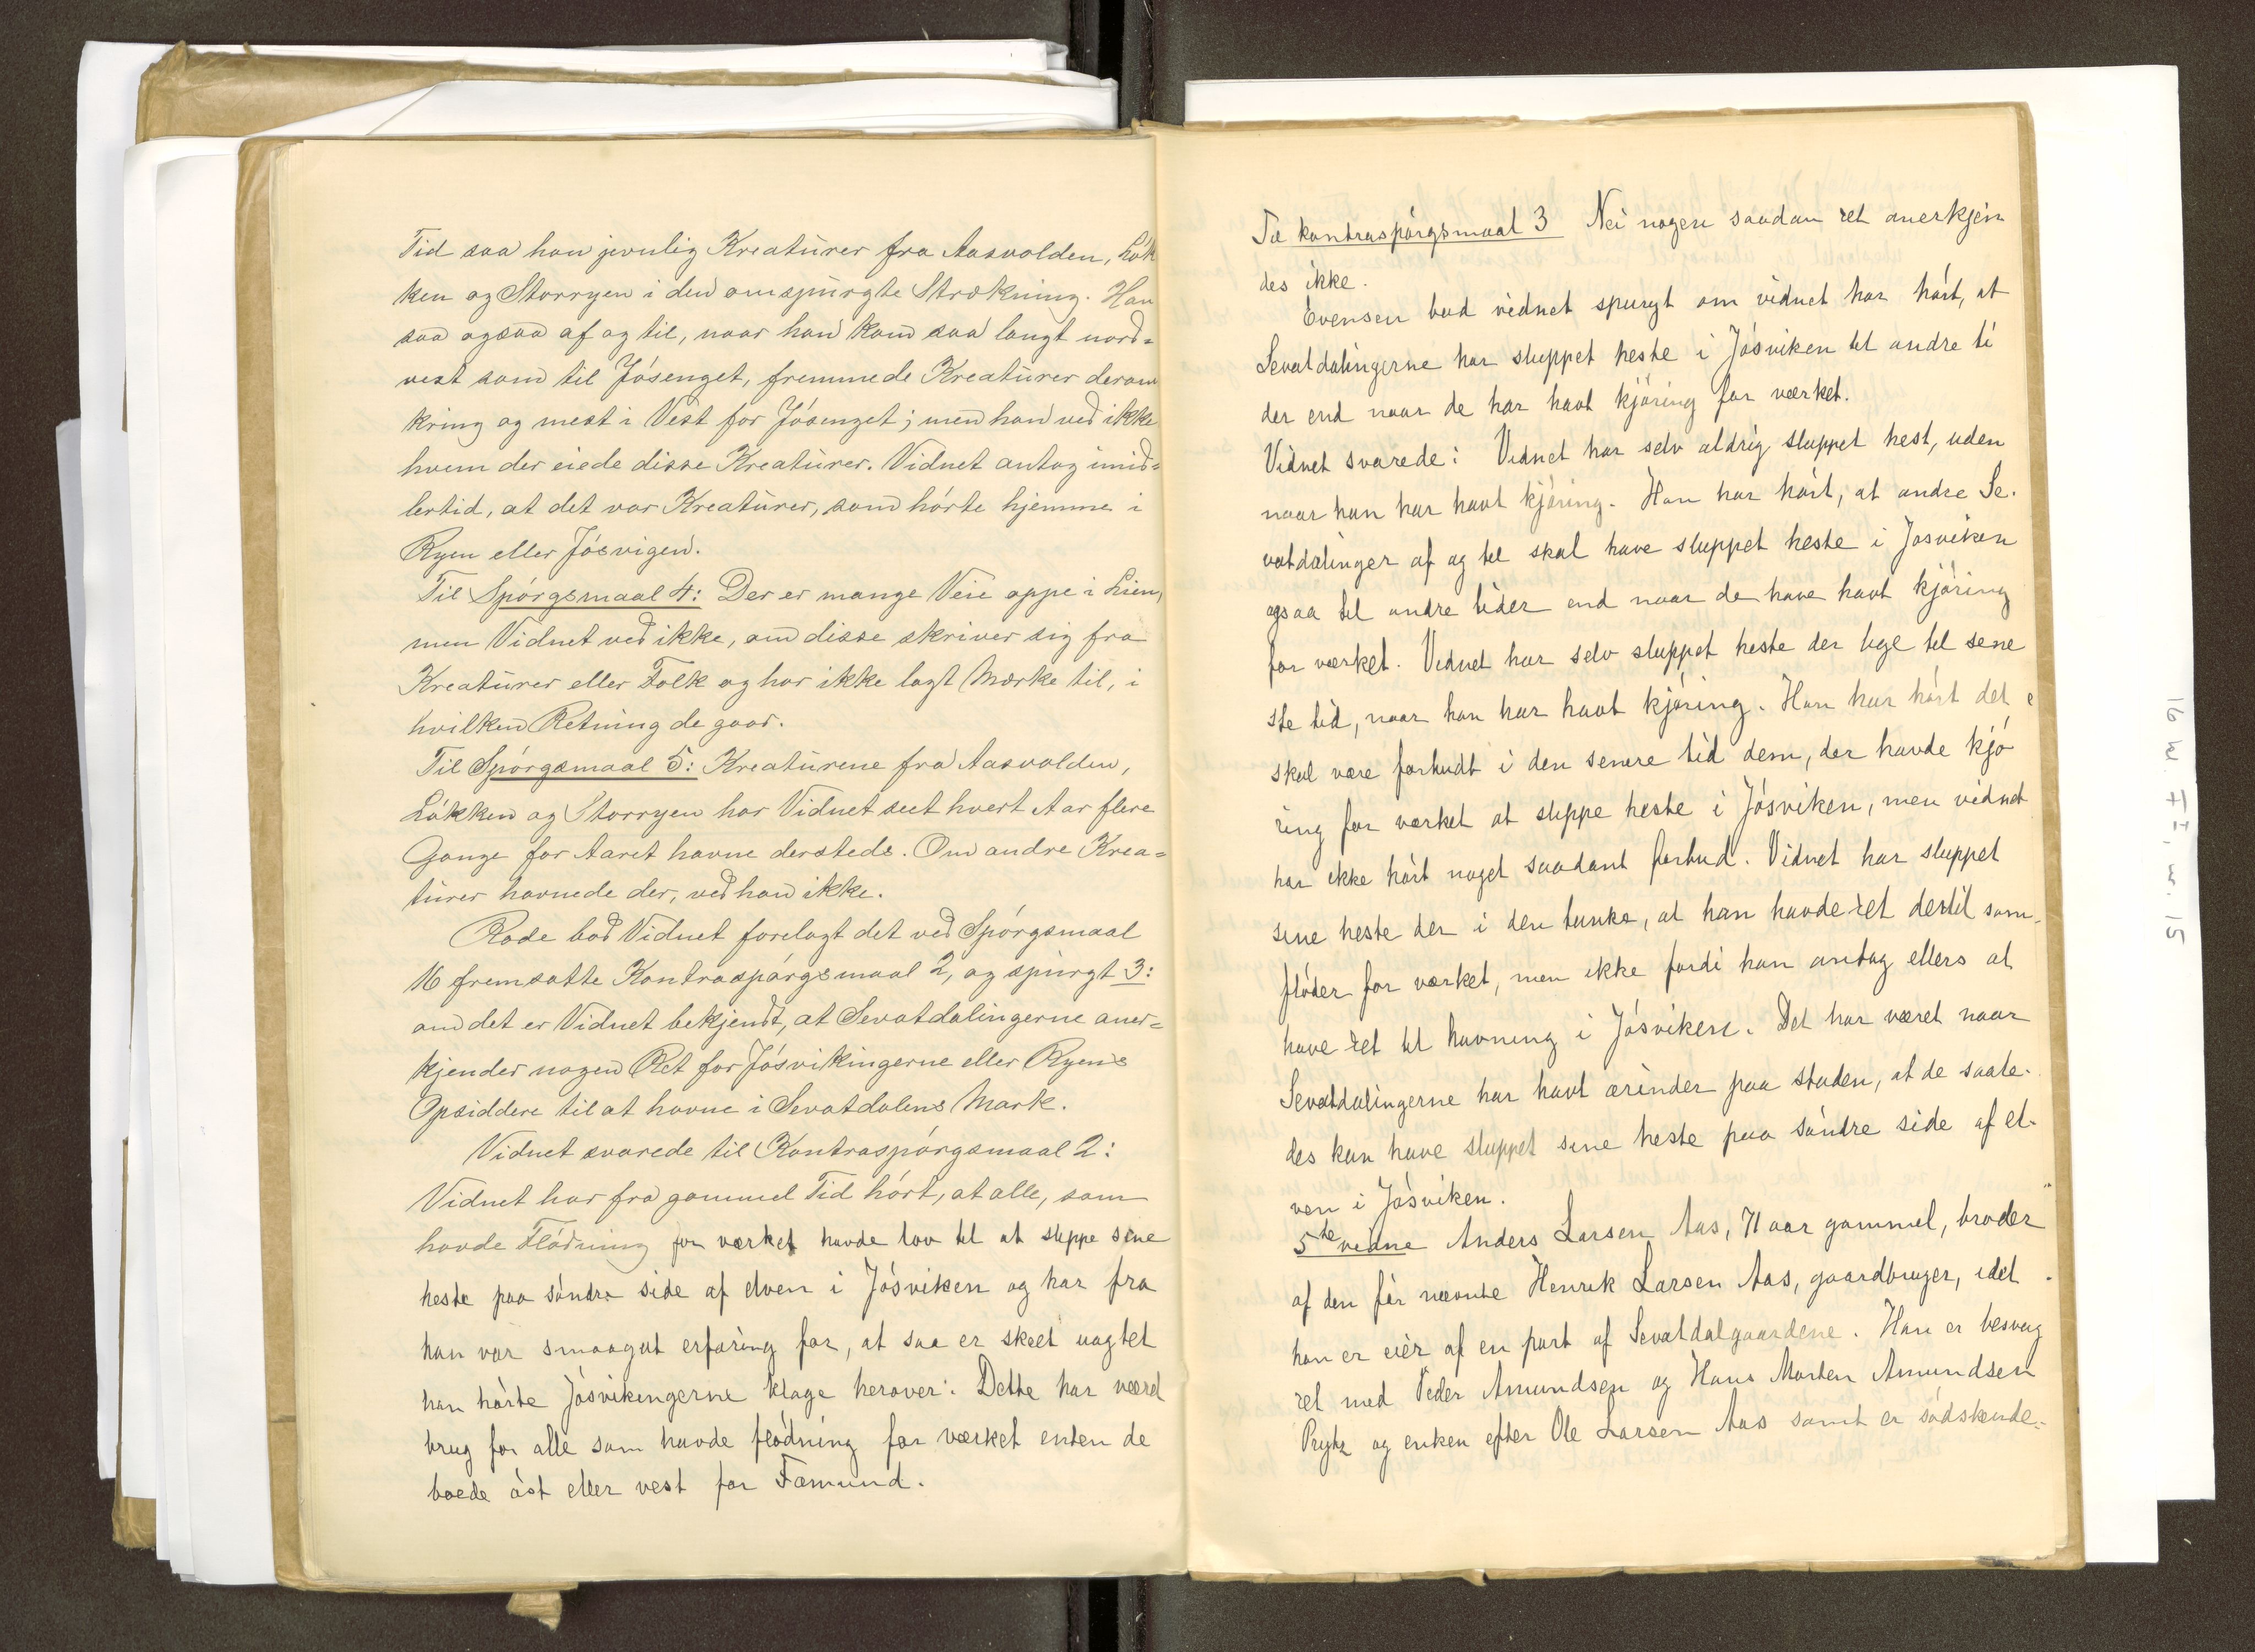 Tid saa han jevnlig Kreatúrer fra Aasvolden, Lók
ken og Storryen i den omspúrgte Strækning. Han
saa ogsaa af og til, naar han kom saa langt nord-
vest som til Jósenget, fremmede Kreatúrer derom
kring og mest i Vest for Jósenget; men han ved ikke
hvem der eiede disse Kreatúrer. Vidnet antog imid-
lertid, at det var Kreatúrer, som hórte hjemme i
Ryen eller Jósvigen.
Til Spórgsmaal 4: Der er mange Veie oppe i Lien,
men Vidnet ved ikke, om disse skriver sig fra
Kreatúrer eller Folk og har ikke lagt Mærke til, i
hvilken Retning de gaar.
Til Spórgsmaal 5: Kreatúrene fra Aasvolden,
Lókken og Storryen har Vidnet seet hvert Aar flere
Gange for Aaret havne dersteds. Om andre Krea-
túrer havnede der, ved han ikke.
Rode bad Vidnet forelagt det ved Spórgsmaal
16 fremsatte Kontraspórgsmaal 2, og spúrgt 3:
om det er Vidnet bekjendt, at Sevatdalingerne aner-
kjender nogen Ret for Jósvikingerne eller Ryens
Opsiddere til at havne i Sevatdalens Mark.
Vidnet svarede til Kontraspórgsmaal 2:
Vidnet har fra gammel Tid hórt, at alle, som
havde Flódning for værket havde lov til at slippe sine
heste paa sóndre side af elven i Jósviken og har fra
han var smaagut erfaring for, at saa er skeet uagtet
han hórte Jósvikingerne klage herover. Dette har været
brug for alle som havde flódning for værket enten de
boede óst eller vest for Fæmund.
Til kontraspórgsmaal 3 Nei nogen saadan ret anerkjen
des ikke.
Evensen bad vidnet spurgt om vidnet har hórt, at
Sevatdalingerne har sluppet heste i Jósviken til andre ti
der end naar de har havt kjóring for værket.
Vidnet svarede: Vidnet har selv aldrig sluppet hest, uden
naar han har havt kjóring. Han har hórt, at andre Se-
vatdalinger af og til skal have sluppet heste i Jósviken
ogsaa til andre tider end naar de have havt kjóring
for værket. Vidnet har selv sluppet heste der lige til sene
ste tid, naar han har havt kjóring. Han har hórt det
skal være forbudt i den senere tid dem, der havde kjó
ring for værket at slippe heste i Jósviken, men vidnet
har ikke hórt noget saadant forbud. Vidnet har sluppet
sine heste der i den tanke, at han havde ret dertil som
flóder for værket, men ikke fordi han antog ellers at
have ret til havning i Jósviken. Det har været naar
Sevatdalingerne har havt ærinder paa staden, at de saale-
des kan have sluppet sine heste paa sóndre side af el-
ven i Jósviken.
5te vidne Anders Larsen Aas, 71 aar gammel, broder
af den fór nævnte Henrik Larsen Aas, gaardbruger, idet
han er eier af en part af Sevatdalgaardene. Han er besvog
ret med Peder Amundsen og Hans Morten Amundsen
Prytz og enken efter Ole Larsen Aas samt er sódskende-
16 W. FI, W. 15